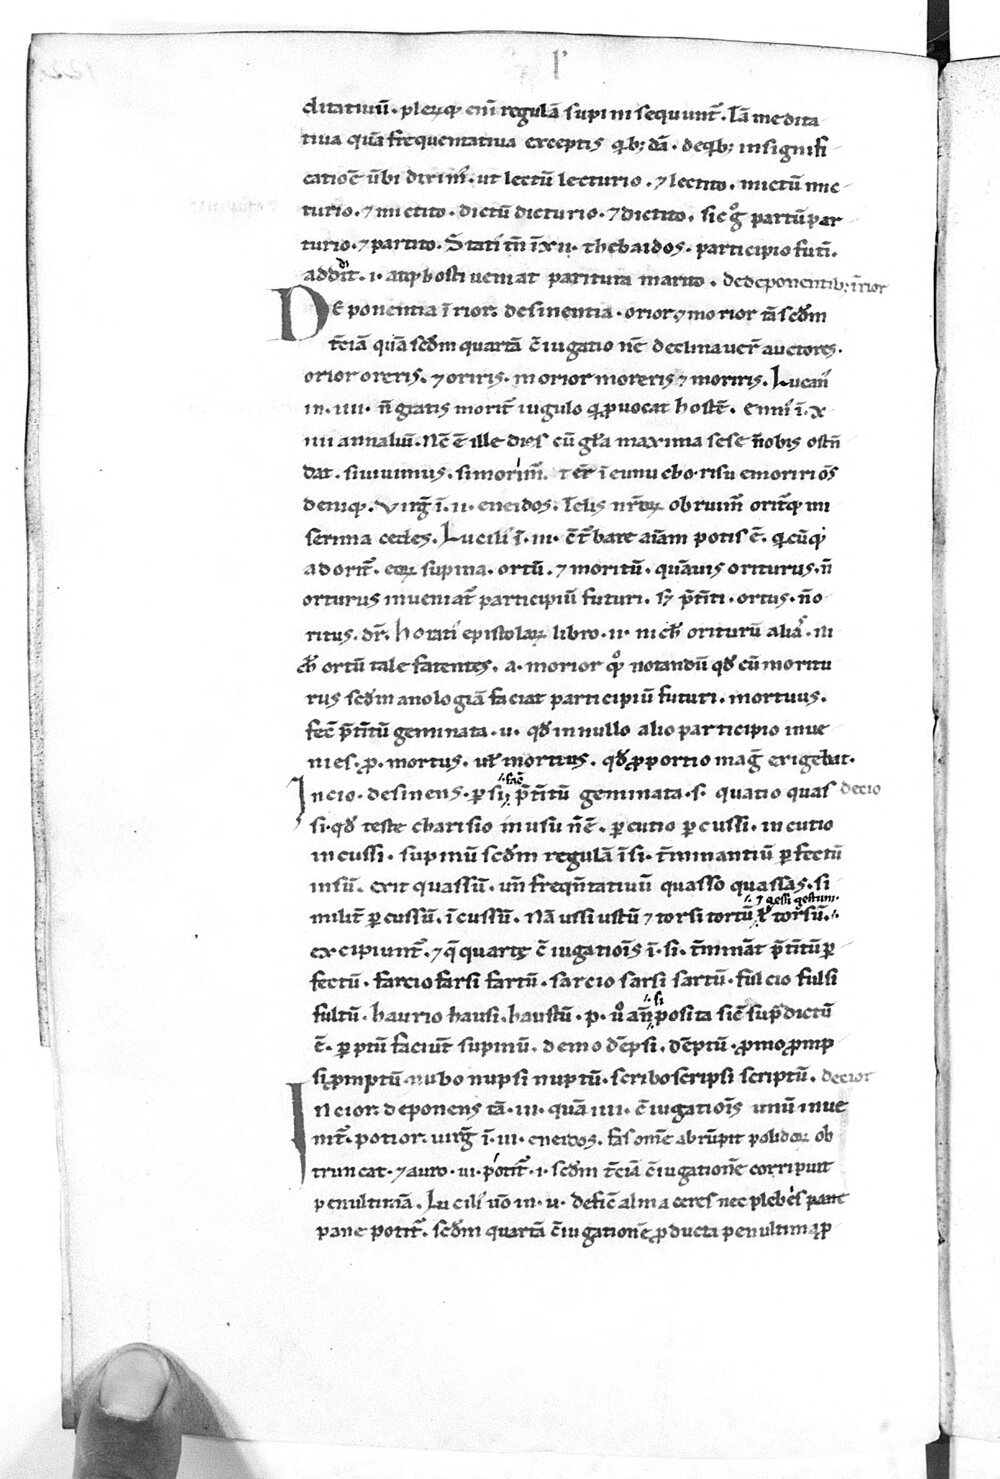 ditatiuū · pleꝝq; eni regulā supini sequunt̄ . tā medita
tiua quā frequentatiua exceptis qb; dā · de qb; insignifi
catiōe ubi dixim̄ . ut lectū lecturio . ⁊ lectito . mictū mic
turio . ⁊ mictito . dictū dicturio · ⁊ dictito . sic gͦ partū par
turio . ⁊ partito . Stati tn̄ ī xii . thebaidos . participio futī .
addit . i . atqᷓ hosti ueniat paritura marito . de deponentib; ī rior
DE ponentia ī rior · desinentia · orior ⁊ morior tā scdm
t̄ciā quā scdm quartā c̄iugationē declinauer̄ auctores .
orior oreris . ⁊ oriris . morior moreris ⁊ moriris . Lucani
in . iiii . n̄ gratis morit̄ iugulo q ꝓuocat hostē . enni ī . x
iiii annaliū . Nc̄ ē ille dies cū gl̄a maxima sese nobis ostn̄
dat . si uiuimus . si morim̄ . ter̄ ī eunucho · risu emoriri ōs
deniq; . Virg̃ ī . ii . eneidos . Telis nr̄oꝝ obruim̄ orit̄q; mi
serrima cedes . Lucili ī . iii . c̄t̄bare aūam potis ē . q cūq;
adorit̄ . eoꝝ supina . ortū . ⁊ moritū . quāuis oriturus . n̄
orturus inueniat̄ participiū futuri . s; p̄t̄iti · ortus · n̄ o
ritus . dr̄ . Horati epistolaꝝ libro · ii · nich̄ oriturū aliā . ni
ch̄ ortū tale fatentes . a · morior qͦ notandū qd̄ cū moritu
rus scdm anologiā faciat participiū futuri . mortuus .
fec̄ p̄t̄itū geminata · u · qd̄ in nullo alio participio inue
nies . ꝓ . mortus . ut̄ mortuus . qd̄ ꝓportio mag̃ exigebat .
In cio · desinens · ꝑ si; sac̄ p̄t̄itū geminata · s · quatio quas decio
si · qd̄ teste charisio in usu n̄ ē . ꝑcutio ꝑcussi . incutio
incussi . supinū scdm regulā ī si · t̄minantiū ꝑfectū
in sū . erit quassū . un̄ freqn̄tatiuū quasso quassas . si
⁊ gessi gestum
milit̄ ꝑcussū . īcussū . Nā ussi ustū ⁊ torsi tortū ł torsū .
excipiunt̄ . ⁊ q̄ quartę c̄iugatiōis ī . si . t̄mināt p̄t̄itū ꝑ
fectū . farcio farsi fartū . sarcio sarsi sartū . fulcio fulsi
si
fultū . haurio hausi . haustū . p . uͦ an̄ posita sic̄ sup̄dictū
ē . ꝑ ptū faciūt supinū . demo dēpsi . dēptū . ꝓmo ꝓmp
si ꝓmptū nubo nupsi nuptū . scribo scripsi scriptū . decior
In cior · deponens tā · iii · quā iiii · c̄iugatiōis unū inue
nit̄ . potior . uirg̃ ī . iii . eneidos . fas omē abrūpit polidoꝝ ob
truncat . ⁊ auro . ui . potit̄ . i . scdm t̄ciā c̄iugationē corripuit
penultimā . Lucili uō in . u . defic̄ alma ceres nec plebes pane
pane potit̄ . scdm quartā c̄iugationē ꝓducta penultima ꝓ